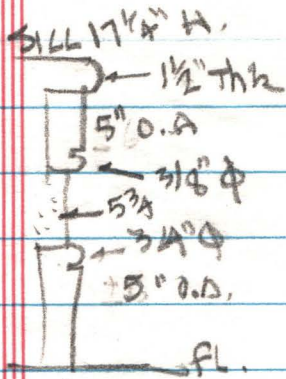 SILL 17 1/4" H.
1 1/2" Thk
5" O.A
3/8" φ
5 3/4
3/4" φ
5" O.A.
FL.